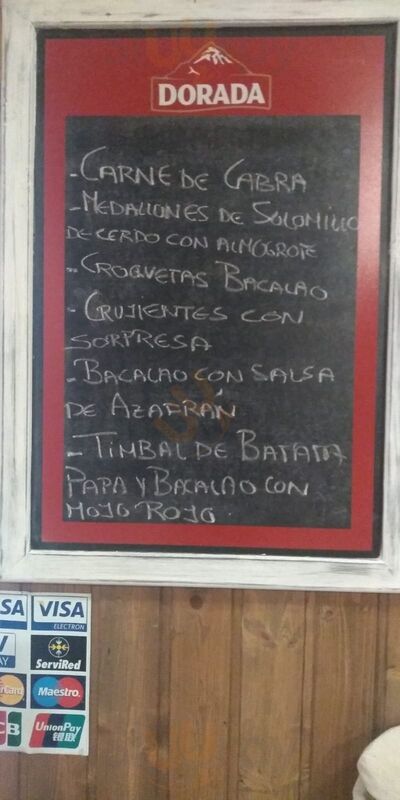 DORADA
- CARNE DE CABRA
- MEDALLONES DE SOLOMILLO
DE CERDO CON ALMOGROTE
- CROQUETAS BACALAO
- CRUJIENTES CON
SORPRESA
- BACALAO CON SALSA
DE AZAFRÁN
- TIMBAL DE BATATA
PAPA Y BACALAO CON
MOJO ROJO.
VISA
ELECTRON
ServiRed
Maestro
UnionPay
银联